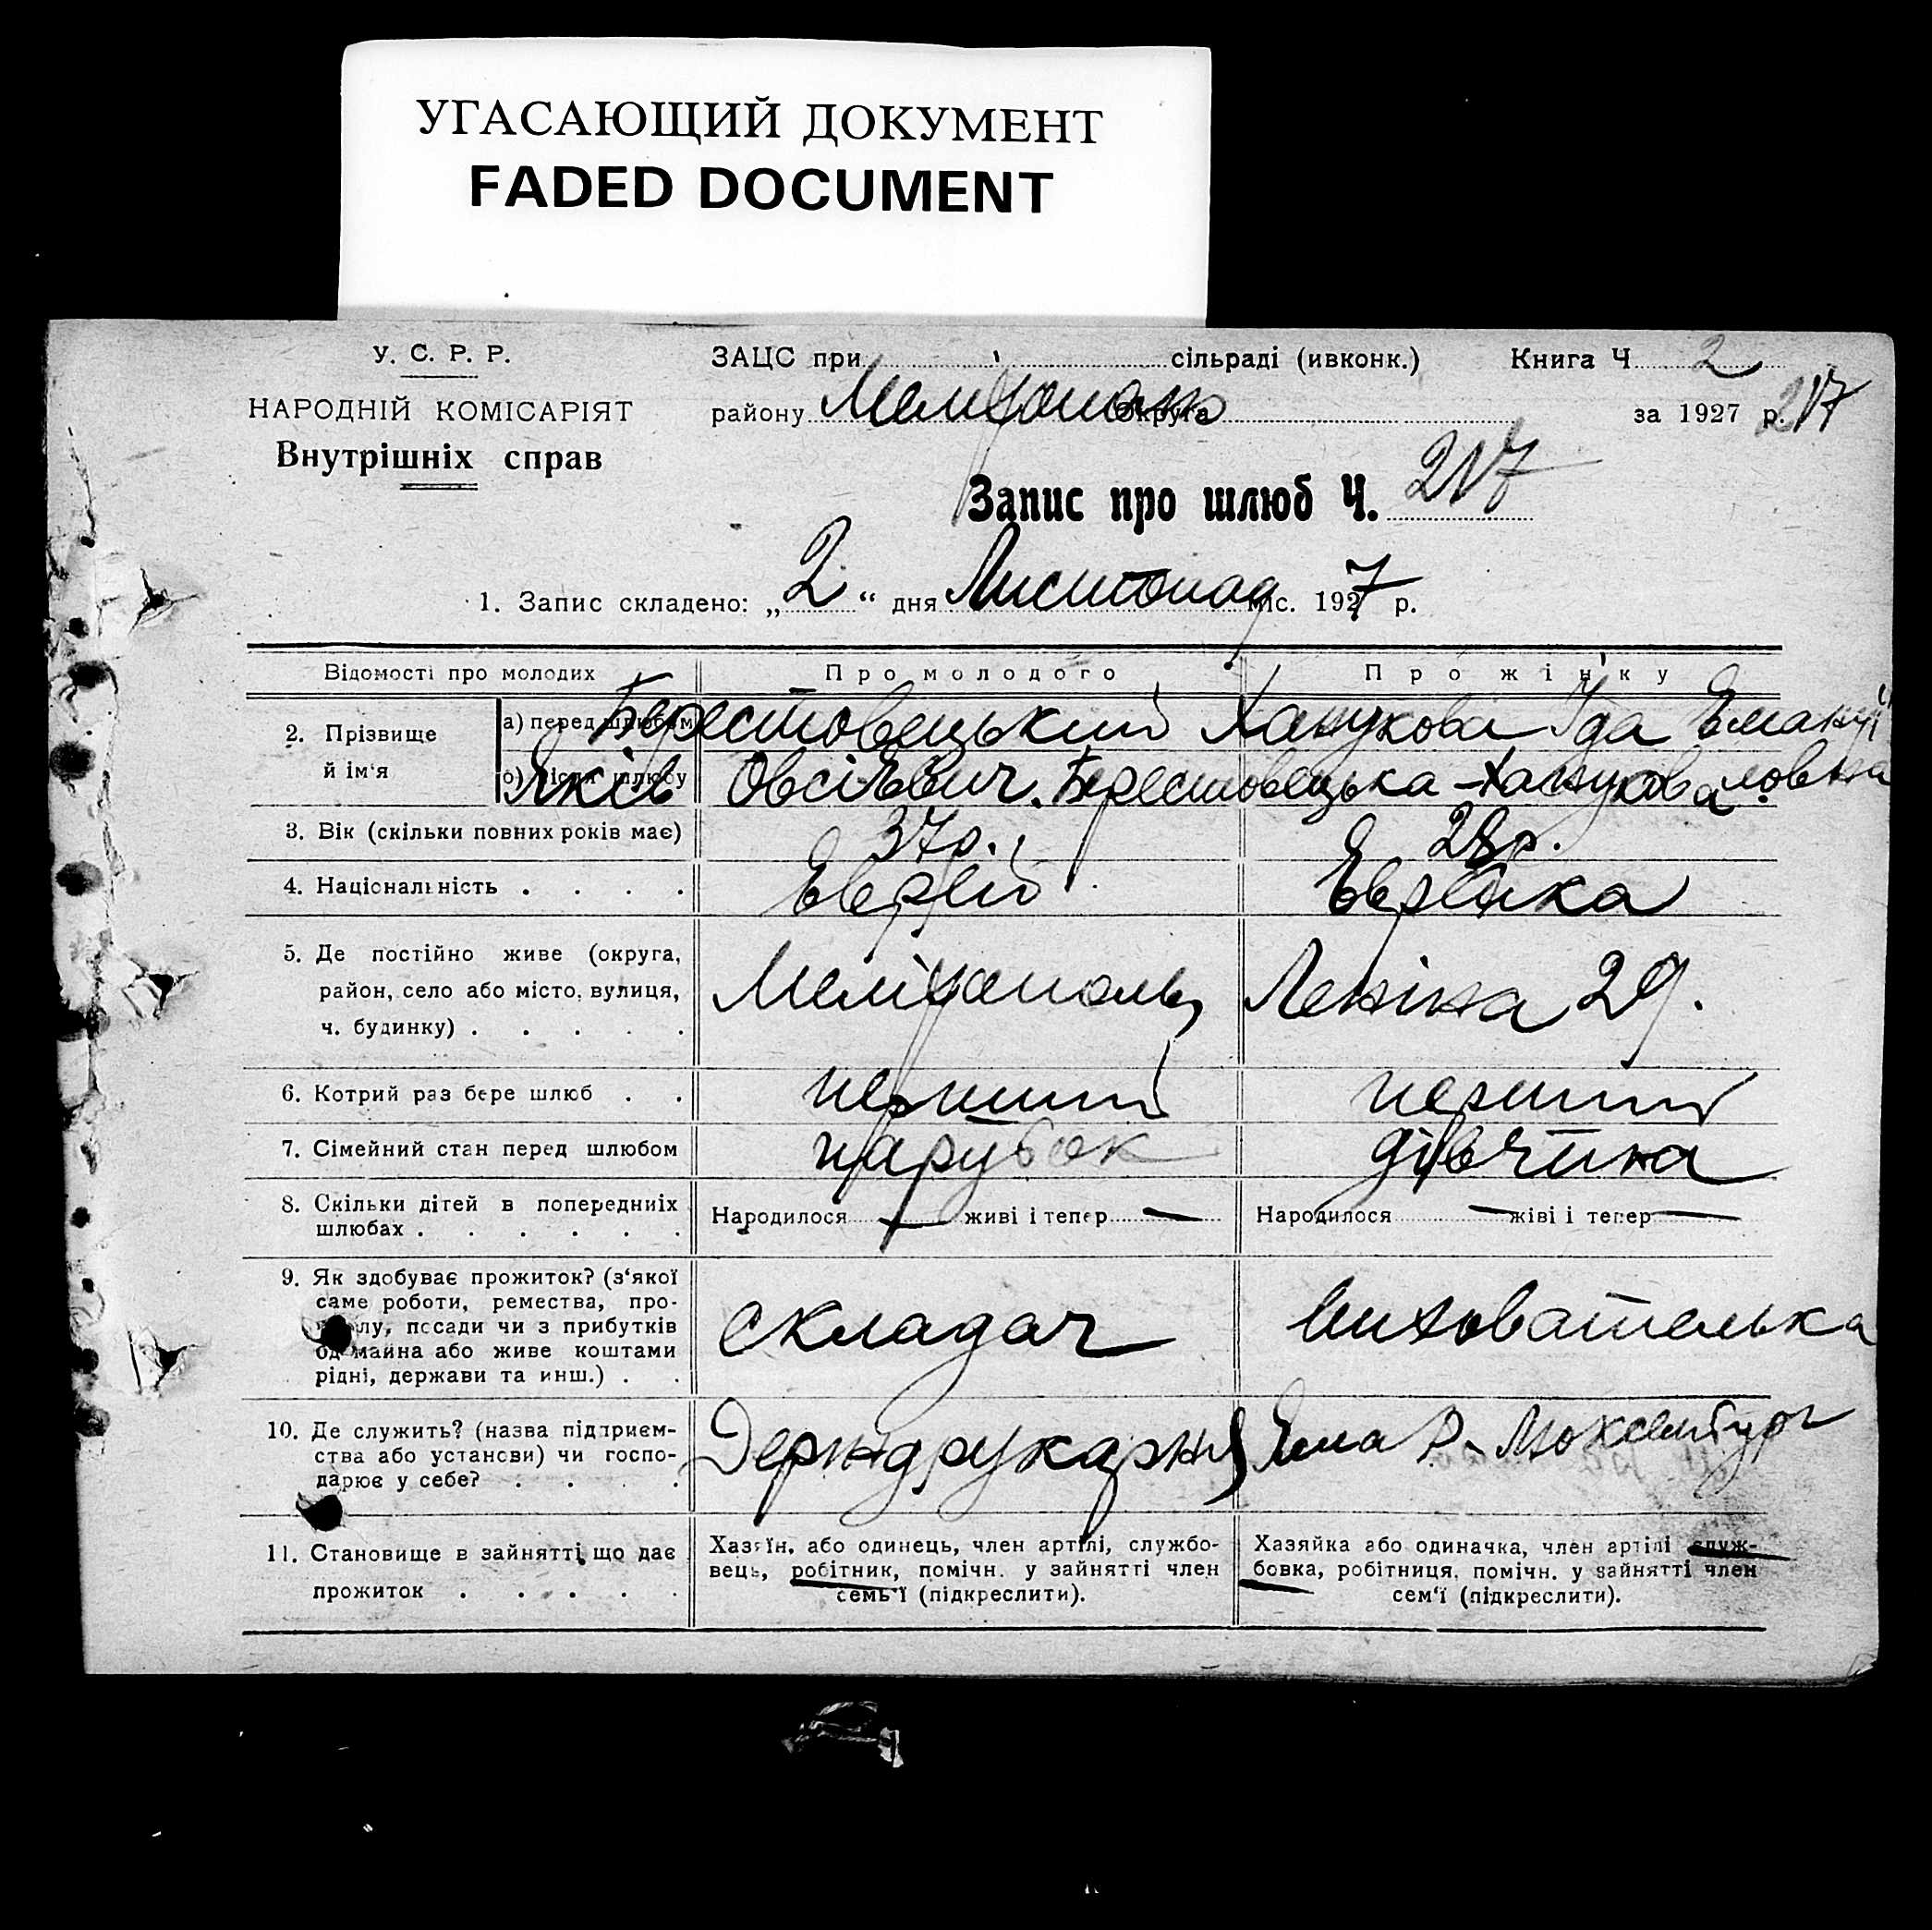 УГАСАЮЩИЙ ДОКУМЕНТ
FADED DOCUMENT
У. С. Р. Р.
НАРОДНІЙ КОМІСАРІЯТ
Внутрішніх справ
ЗАЦС при сільраді (ивконк.) Книга Ч 2
району округа за 1927 р. 217
Запис про шлюб Ч. 217
1. Запис складено: „2“ дня Листопад міс. 1927 р.
Відомості про молодих Про молодого Про жінку
2. Прізвище й ім'я
а) перед шлюбом Берестовецький Ханукова Іда Емануї
б) після шлюбу Яків Овсієвич. Берестовецька-Ханукова ловна
3. Вік (скільки повних років має) 37 р. 28 р.
4. Національність . . . . Еврей Еврейка
5. Де постійно живе (округа,
район, село або місто, вулиця,
ч. будинку) . . . . . Мелітополь, Леніна 29.
6. Котрий раз бере шлюб . . перший перший
7. Сімейний стан перед шлюбом парубок дівчина
8. Скільки дітей в попередніїх
шлюбах . . . . . . Народилося — живі і тепер — Народилося — живі і тепер —
9. Як здобуває прожиток? (з'якої
саме роботи, ремества, про-
лу, посади чи з прибутків
од майна або живе коштами
рідні, держави та инш.) . . складач вихователька
10. Де служить? (назва підприєм-
ства або установи) чи госпо-
дарює у себе? . . . . Держдрукарня
11. Становище в зайнятті, що дає
прожиток . . . . .
Хазяїн, або одинець, член артілі, службо-
вець, робітник, помічн. у зайнятті член
семь'ї (підкреслити).
Хазяйка або одиначка, член артілі служ-
бовка, робітниця, помічн. у зайнятті член
сем'ї (підкреслити).